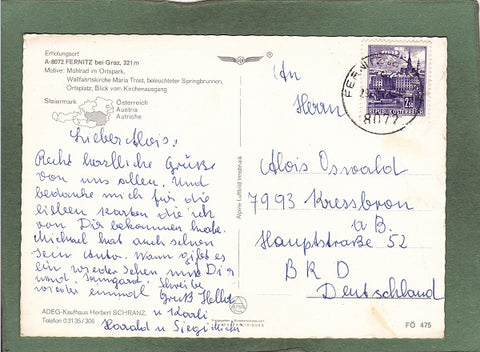 Erholungsort
A-8072 FERNITZ bei Graz, 321 m
Motive: Mühlrad im Ortspark,
Wallfahrtskirche Maria Trost, beleuchteter Springbrunnen,
Ortsplatz, Blick vom Kirchenausgang
Steiermark
Österreich
Austria
Autriche
Lieber Alois!
Recht herzliche Grüße
von uns allen. Und
bedanke mich für die
lieben Karten die ich
von Dir bekommen habe.
Michael hat auch schon
sein Auto. Wann gibt es
ein wieder sehen mit Dir
und Irmgard. Schreibe
wieder einmal Gruß
u Karli
Harald u Siegi
ADEG-Kaufhaus Herbert SCHRANZ,
Telefon 03135/306
Alpine Luftbild Innsbruck
An
Herrn
Alois Osswald
7993 Kressbron
a B.
Hauptstraße 52
BRD
Deutschland
8072
REPUBLIK ÖSTERREICH
FÖ 475